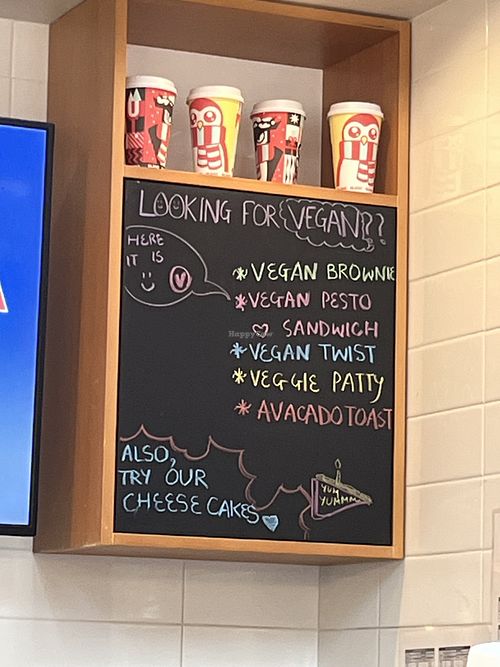 LOOKING FOR VEGAN??
HERE
IT IS
V
* VEGAN BROWNIE
* VEGAN PESTO
SANDWICH
* VEGAN TWIST
* VEGGIE PATTY
* AVACADO TOAST
ALSO,
TRY OUR
CHEESE CAKES
YUM
YUMMM
HappyCow